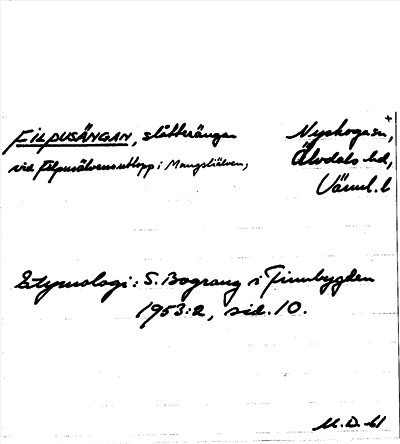 FILPUSÄNGAN, slåtterängar
vid Filpusälvens utlopp i Mangsliälven,
Nyskoga sn,
Älvdals hd,
Värml. l
Etymologi: S. Bograng i Finnbygden
1953:2, sid. 10.
M. D. 61